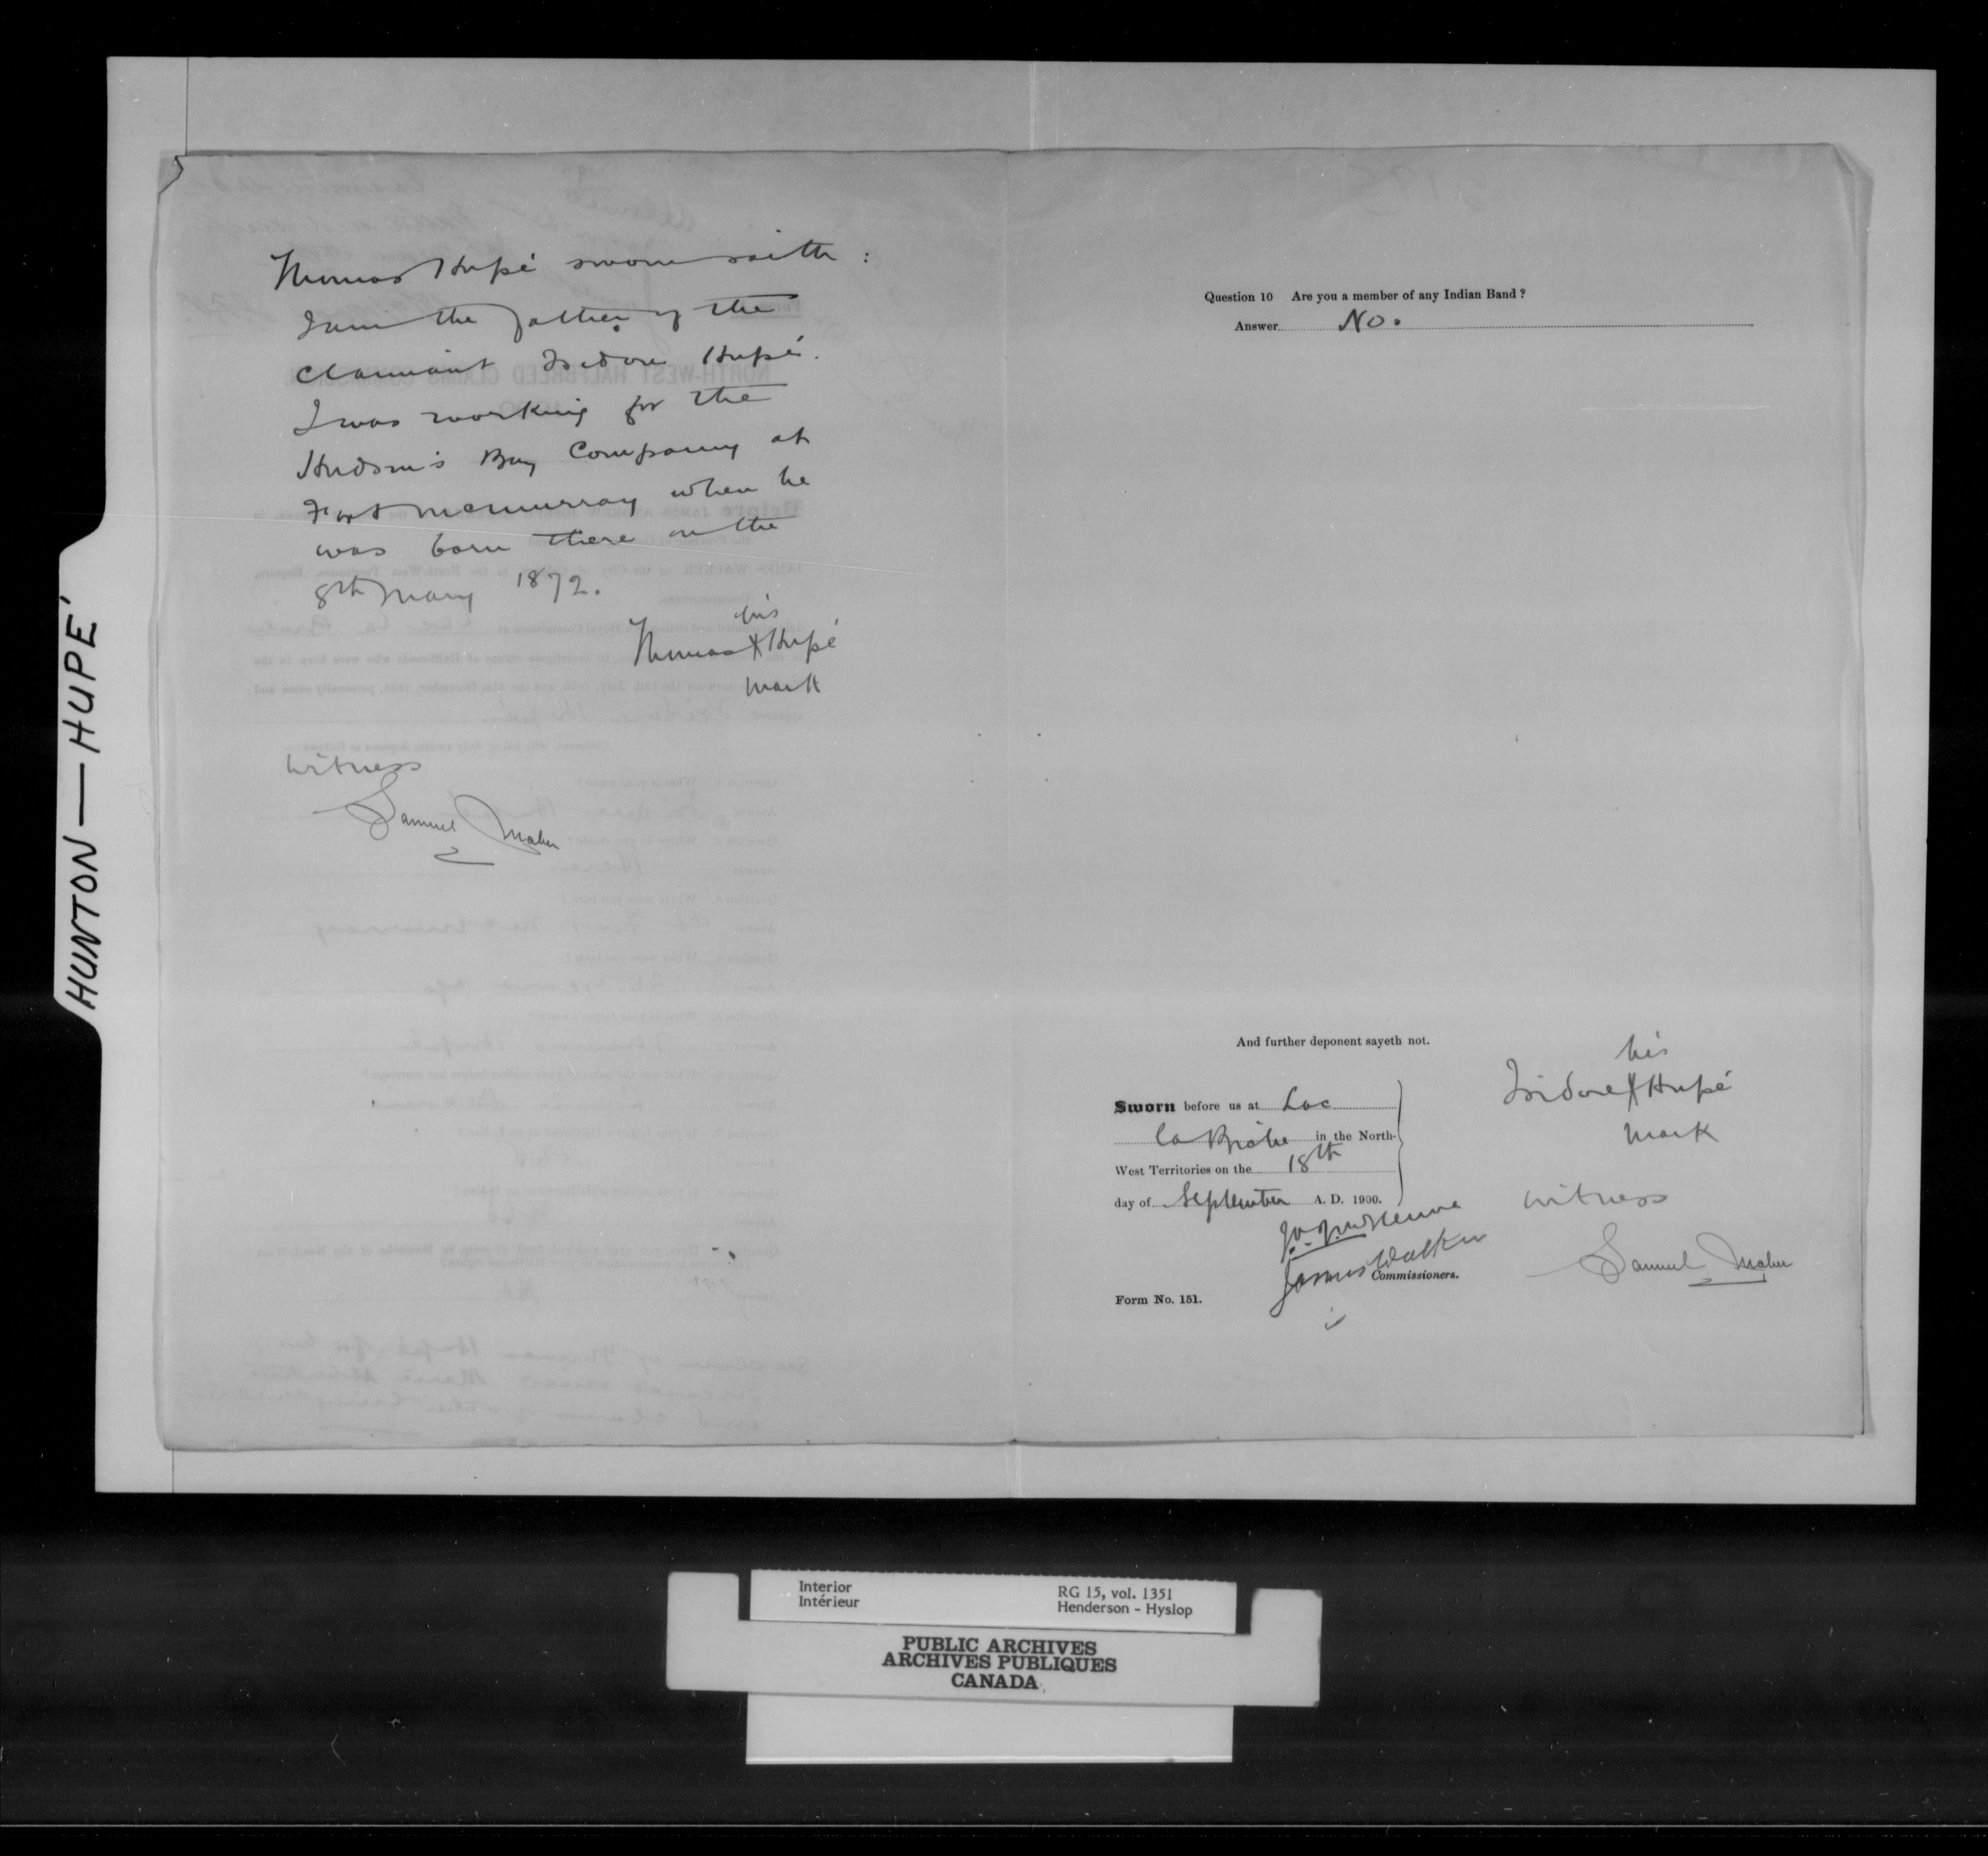 HUNTON — HUPÉ
Thomas Hupé sworn saith :
I am the father of the
Claimant Isidore Hupé.
I was working for the
Hudson's Bay Company at
Fort McMurray when he
was born there on the
8th May 1872.
his
Thomas X Hupé
mark
Witness
Samuel Maher
Question 10 Are you a member of any Indian Band ?
Answer No.
And further deponent sayeth not.
Sworn before us at Lac
la Biche in the North-
West Territories on the 18th
day of September A. D. 1900.
James Walker
Commissioners.
Form No. 151.
his
Isidore X Hupé
mark
Witness
Samuel Maher
Interior
Intérieur
RG 15, vol. 1351
Henderson - Hyslop
PUBLIC ARCHIVES
ARCHIVES PUBLIQUES
CANADA